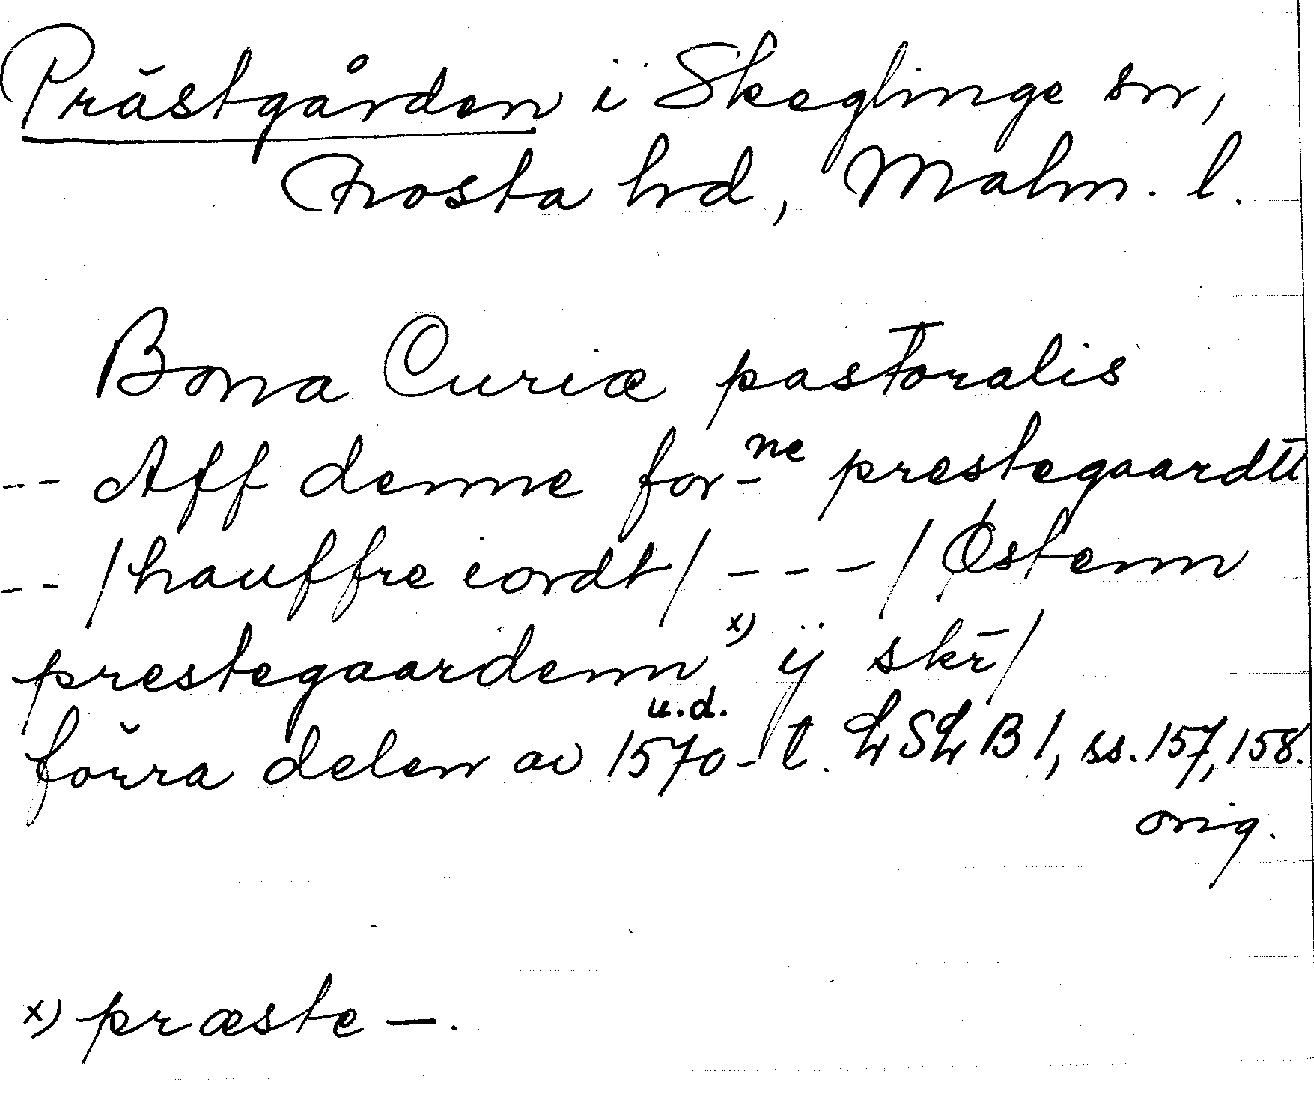 Prästgården i Skeglinge sn,
Frosta hd, Malm. l.
Bona Curiæ pastoralis
-- Aff denne for-ne prestegaardtt
-- / hauffre iordt / --- / Østenn
prestegaardenn x) ÿ skr /
förra delen av 1570-t. u.d. LSLB1, ss. 157, 158.
orig.
x) præste —.